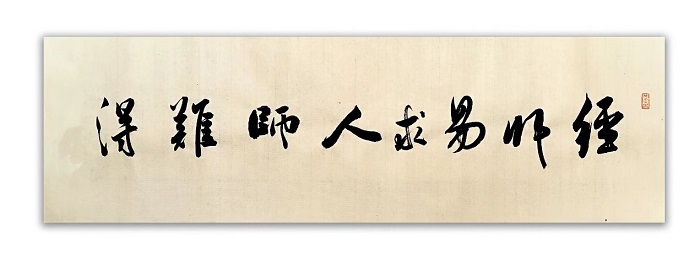 經師易求人師難得